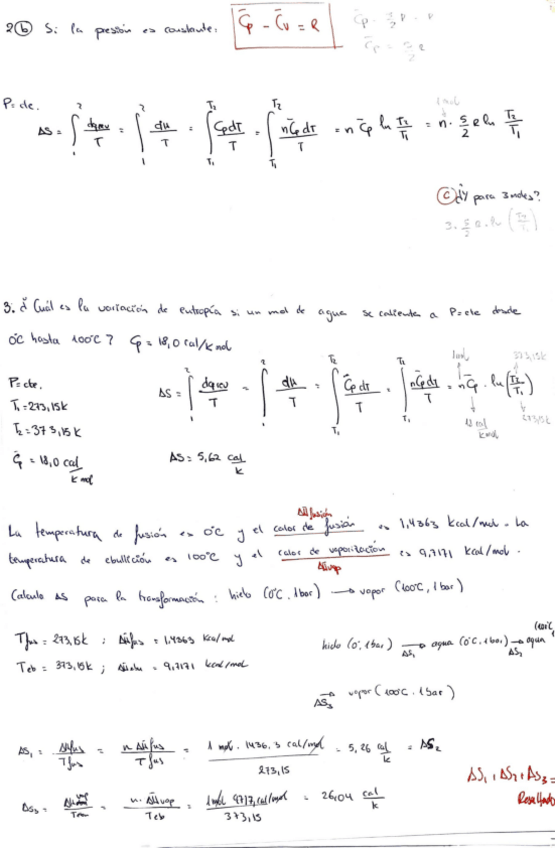 2 b) Si la presión es constante: C̄p - C̄v = R
C̄p - 3/2 R = R
C̄p = 5/2 R
P=cte.
ΔS = ∫₁² dqrev/T = ∫₁² dH/T = ∫_T₁^T₂ CpdT/T = ∫_T₁^T₂ nC̄pdT/T = n C̄p ln T₂/T₁ = n · 5/2 R ln T₂/T₁
1 mol
c) ¿Y para 3 moles?
3 · 5/2 R · ln (T₂/T₁)
3. ¿Cuál es la variación de entropía si un mol de agua se calienta a P=cte desde
0°C hasta 100°C? C̄p = 18,0 cal/k mol
P=cte.
T₁ = 273,15k
T₂ = 373,15k
C̄p = 18,0 cal/k mol
ΔS = ∫₁² dqrev/T = ∫₁² dH/T = ∫_T₁^T₂ C̄pdT/T = ∫_T₁^T₂ nC̄pdT/T = nC̄p · ln (T₂/T₁)
1mol 373,15k
18 cal/k mol 273,15k
ΔS = 5,62 cal/k
ΔHfusión
La temperatura de fusión es 0°C y el calor de fusión es 1,4363 kcal/mol. La
temperatura de ebullición es 100°C y el calor de vaporización es 9,7171 kcal/mol.
ΔHvap
Calcula ΔS para la transformación: hielo (0°C, 1bar) → vapor (100°C, 1 bar)
Tfus = 273,15k ; ΔH̄fus = 1,4363 kcal/mol
Teb = 373,15k ; = 9,7171 kcal/mol
hielo (0°, 1bar) →ΔS₁ agua (0°C, 1bar) →ΔS₂ agua (100°C,
→ΔS₃ vapor (100°C, 1bar)
ΔS₁ = ΔHfus/Tfus = n ΔH̄fus/Tfus = 1 mol · 1436,3 cal/mol / 273,15 = 5,26 cal/k = ΔS₂
ΔS₃ = = n · ΔH̄vap/Teb = 1mol 9717,1 cal/mol / 373,15 = 26,04 cal/k
ΔS₁ + ΔS₂ + ΔS₃ =
Resultado